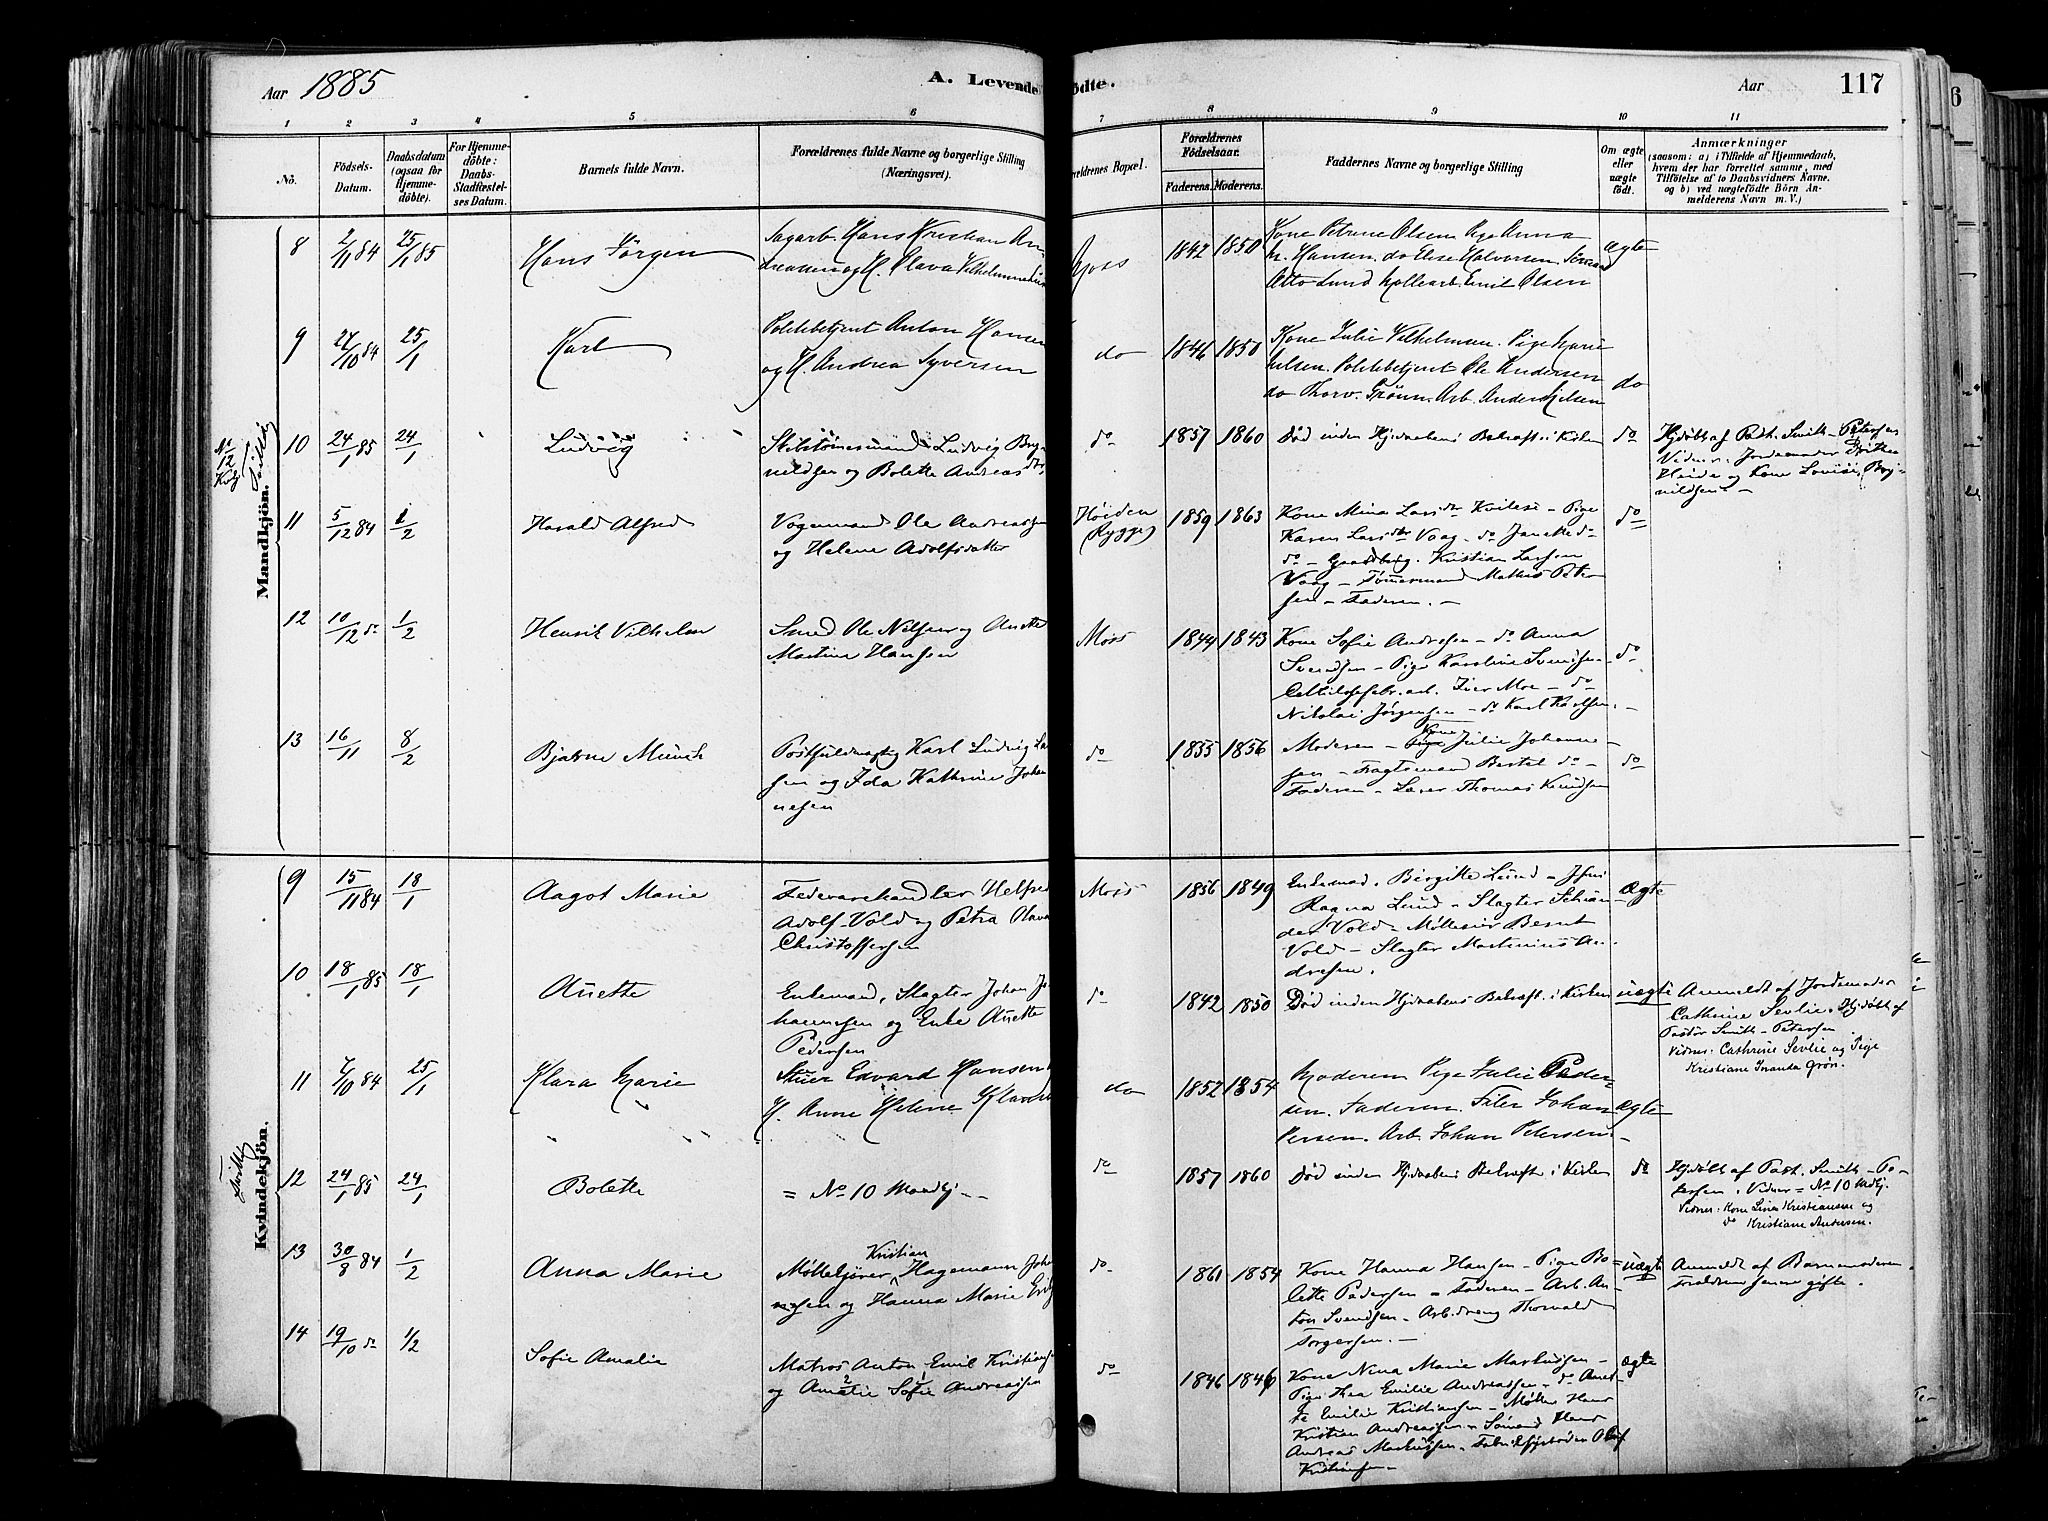 Aar 1885
A. Levende
ødte.
Aar
117
6
1 2 3 4 5 6 7 8 9 10 11
No.
Födsels-
Datum.
Daabsdatum
(ogsaa for
Hjemme-
döbte).
For Hjemme-
döbte:
Daabs-
Stadfæstel-
ses Datum.
Barnets fulde Navn.
Forældrenes fulde Navne og borgerlige Stilling
(Næringsvei).
ældrenes Bopæl.
Forældrenes
Födselsaar.
Faderens.
Moderens.
Faddernes Navne og borgerlige Stilling
Om ægte
eller
uægte
födt.
Anmærkninger
(saasom: a) i Tilfælde af Hjemmedaab,
hvem der har forrettet samme, med
Tilföielse af to Daabsvidners Navne,
og b) ved uægtefödte Börn An-
melderens Navn m. V.)
Mandkjön.
8 2/11 84 25/1 85 Hans Jørgen
Sagarb. Hans Kristian An-
og H. Olava
Moss 1842 1850
Kone Petrine Olsen Pige Anna
Hansen. do Elise Halvorsen.
Otto Lund Mollearb. Emil Olsen
ægte
9 27/10 84 25/1 Karl
Politibetjent Anton Hansen
og H. Andrea Syversen
do 1846 1850
Kone Julie Vilhelmsen. Pige Marie
Nilsen. Politibetjent Ole Andersen
do Thorv. Grönn. Arb. Anders Nilsen
do
No 12 Kvkj. Tvilling
10 24/1 85 24/1 Ludvig
Ludvig Bry-
nildsen og Bolette Andreasdtr.
do 1857 1860
Död inden Hjdaabens Bekræft. i Kirken
do
Hjdöbt af Past. Smith-Petersen
Vidner: Jordemoder
Heide og Kone Lovise Bry-
nildsen. –
11 5/12 84 1/2 Harald Alfred
Vognmand Ole Andreassen
og Helene Adolfsdatter
Høiden
(Rygge) 1859 1863
Kone Mina Larsdtr – Pige
Karen Larsdtr Vaag – do
do – Gaardbrug. Kristian Larsen
Vaag – Tömmermand Mathis Peter
sen – Faderen. –
do
12 10/12 do 1/2 Henrik Vilhelm
Smed Ole Nilsen og Anette
Martine Hansen
Moss 1844 1843
Kone Sofie Andresen – do Anna
Svendsen – Pige Karoline Svendsen
arb. Iver Moe – do
Nikolai Jørgensen – do Karl Karlsen. –
do
13 16/11 8/2 Bjarne Munch
Postfuldmægtig Karl Ludvig Lar
sen og Ida Kathrine Johan
nesen
do 1855 1856
Moderen – Kone Pige Julie Johanne-
sen – Fragtemand Bertel do –
Faderen – Lærer Thomas Knudsen
do
Kvindekjön.
9 15/11 84 18/1 Aagot Marie
Fedevarehandler Helfred
Adolf Vold og Petra Olava
Christoffersen
Moss 1856 1849
Enkemad. Birgitte Lund – Jfru
Ragna Lund – Slagter
der Vold – Møllesvier Bernt
Vold – Slagter Martinius An-
dresen.
ægte
10 18/1 85 18/1 Anette
Enkemand, Slagter Johan Jo
hannesen og Enke Anette
Pedersen
do 1842 1850
Död inden Hjdaabens Bekræft. i Kirken
uægte
Anmeldt af Jordemoder
Cathrine Sevlie. Hjdöbt af
Pastor Smith-Petersen
Vidner: Cathrine Sevlie og Pige
Kristiane Grön.
11 7/10 84 25/1 Klara Marie
Edvard Hansen
H. Anne Helene
do 1852 1854
Moderen Pige Julie Peder-
sen. Faderen. Filer Johan
Arb. Johan Petersen. –
ægte
Tvilling
12 24/1 85 24/1 Bolette
= No 10 Mandkj. –
do 1857 1860
Död inden Hjdaabens Bekræft. i Kirken
do
Hjdöbt af Past. Smith-Pe-
tersen. Vidner = No 10 Mdkj.
Vidner: Kone Lina Kristiansen og
do Kristiane Andersen.
13 30/8 84 1/2 Anna Marie
Kristian
Hagemann Johan
nesen og Hanna Marie
do 1861 1854
Kone Hanna Hansen – Pige Bo-
lette Pedersen – Faderen – Arb. An-
ton Svendsen – Arb.dreng Thorvald
Torgersen. –
uægte
Anmeldt af Barnemoderen.
Forældrene senere gifte.
14 19/10 do 1/2 Sofie Amalie
Matros Anton Emil Kristiansen
og Amalie Sofie Andreassen
do 1846 1846
Kone Nina Marie Markussen –
Pige Thea Emilie Andreassen – do Anet-
te Emilie Kristiansen – Møller Hans
Kristian Andreassen – Sömand Hans
Andreas Markussen – Olaf
Kristiansen –
ægte